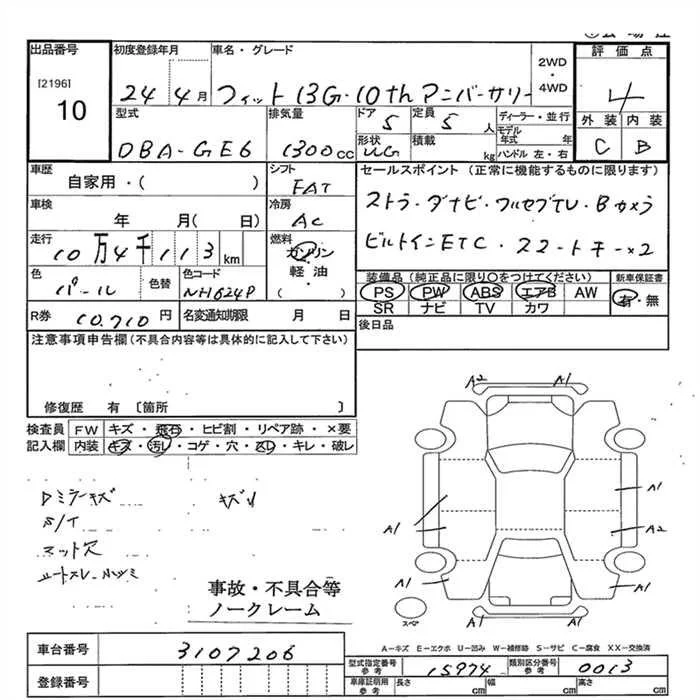 出品番号
[2196]
10
初度登録年月
24 4月
車名・グレード
フィット 13G・10thアニバーサリー
2WD
・
4WD
評価点
4
外装 内装
C B
型式
DBA-GE6
排気量
1300cc
ドア
5
定員
5人
形状
積載
kg
ディーラー・並行
モデル
年式 年
ハンドル 左・右
車歴
自家用・( )
シフト
FAT
セールスポイント (正常に機能するものに限ります)
ストラ・ダナビ・フルセグTV・Bカメラ
ビルトインETC・スマートキー×2
車検
年 月( 日)
冷房
AC
走行
10万4千113km
燃料
ガソリン
・
軽油
・
( )
色
パール
色替
色コード
NH624P
装備品(純正品に限り〇をつけてください)
PS PW ABS エアB AW
SR ナビ TV カワ
新車保証書
有・無
R券
10.710円
名変通知期限 月 日
後日品
注意事項申告欄(不具合内容等は具体的に記入して下さい)
修復歴 有 〔箇所 〕
検査員
記入欄
FW キズ・飛石・ヒビ割・リペア跡・×要
内装 キズ・汚レ・コゲ・穴・スレ・キレ・破レ
Dミラーキズ
キズU
S/イ
マット欠
事故・不具合等
ノークレーム
A2 A1
A1
A1 A2
A1 A1
スペア
A-キズ E-エクボ U-凹み W-補修跡 S-サビ C-腐食 XX-交換済
車台番号
3107206
登録番号
型式指定番号
参考
15974
類別区分番号
参考
0013
車庫証明用
参考
長さ cm 幅 cm 高さ cm